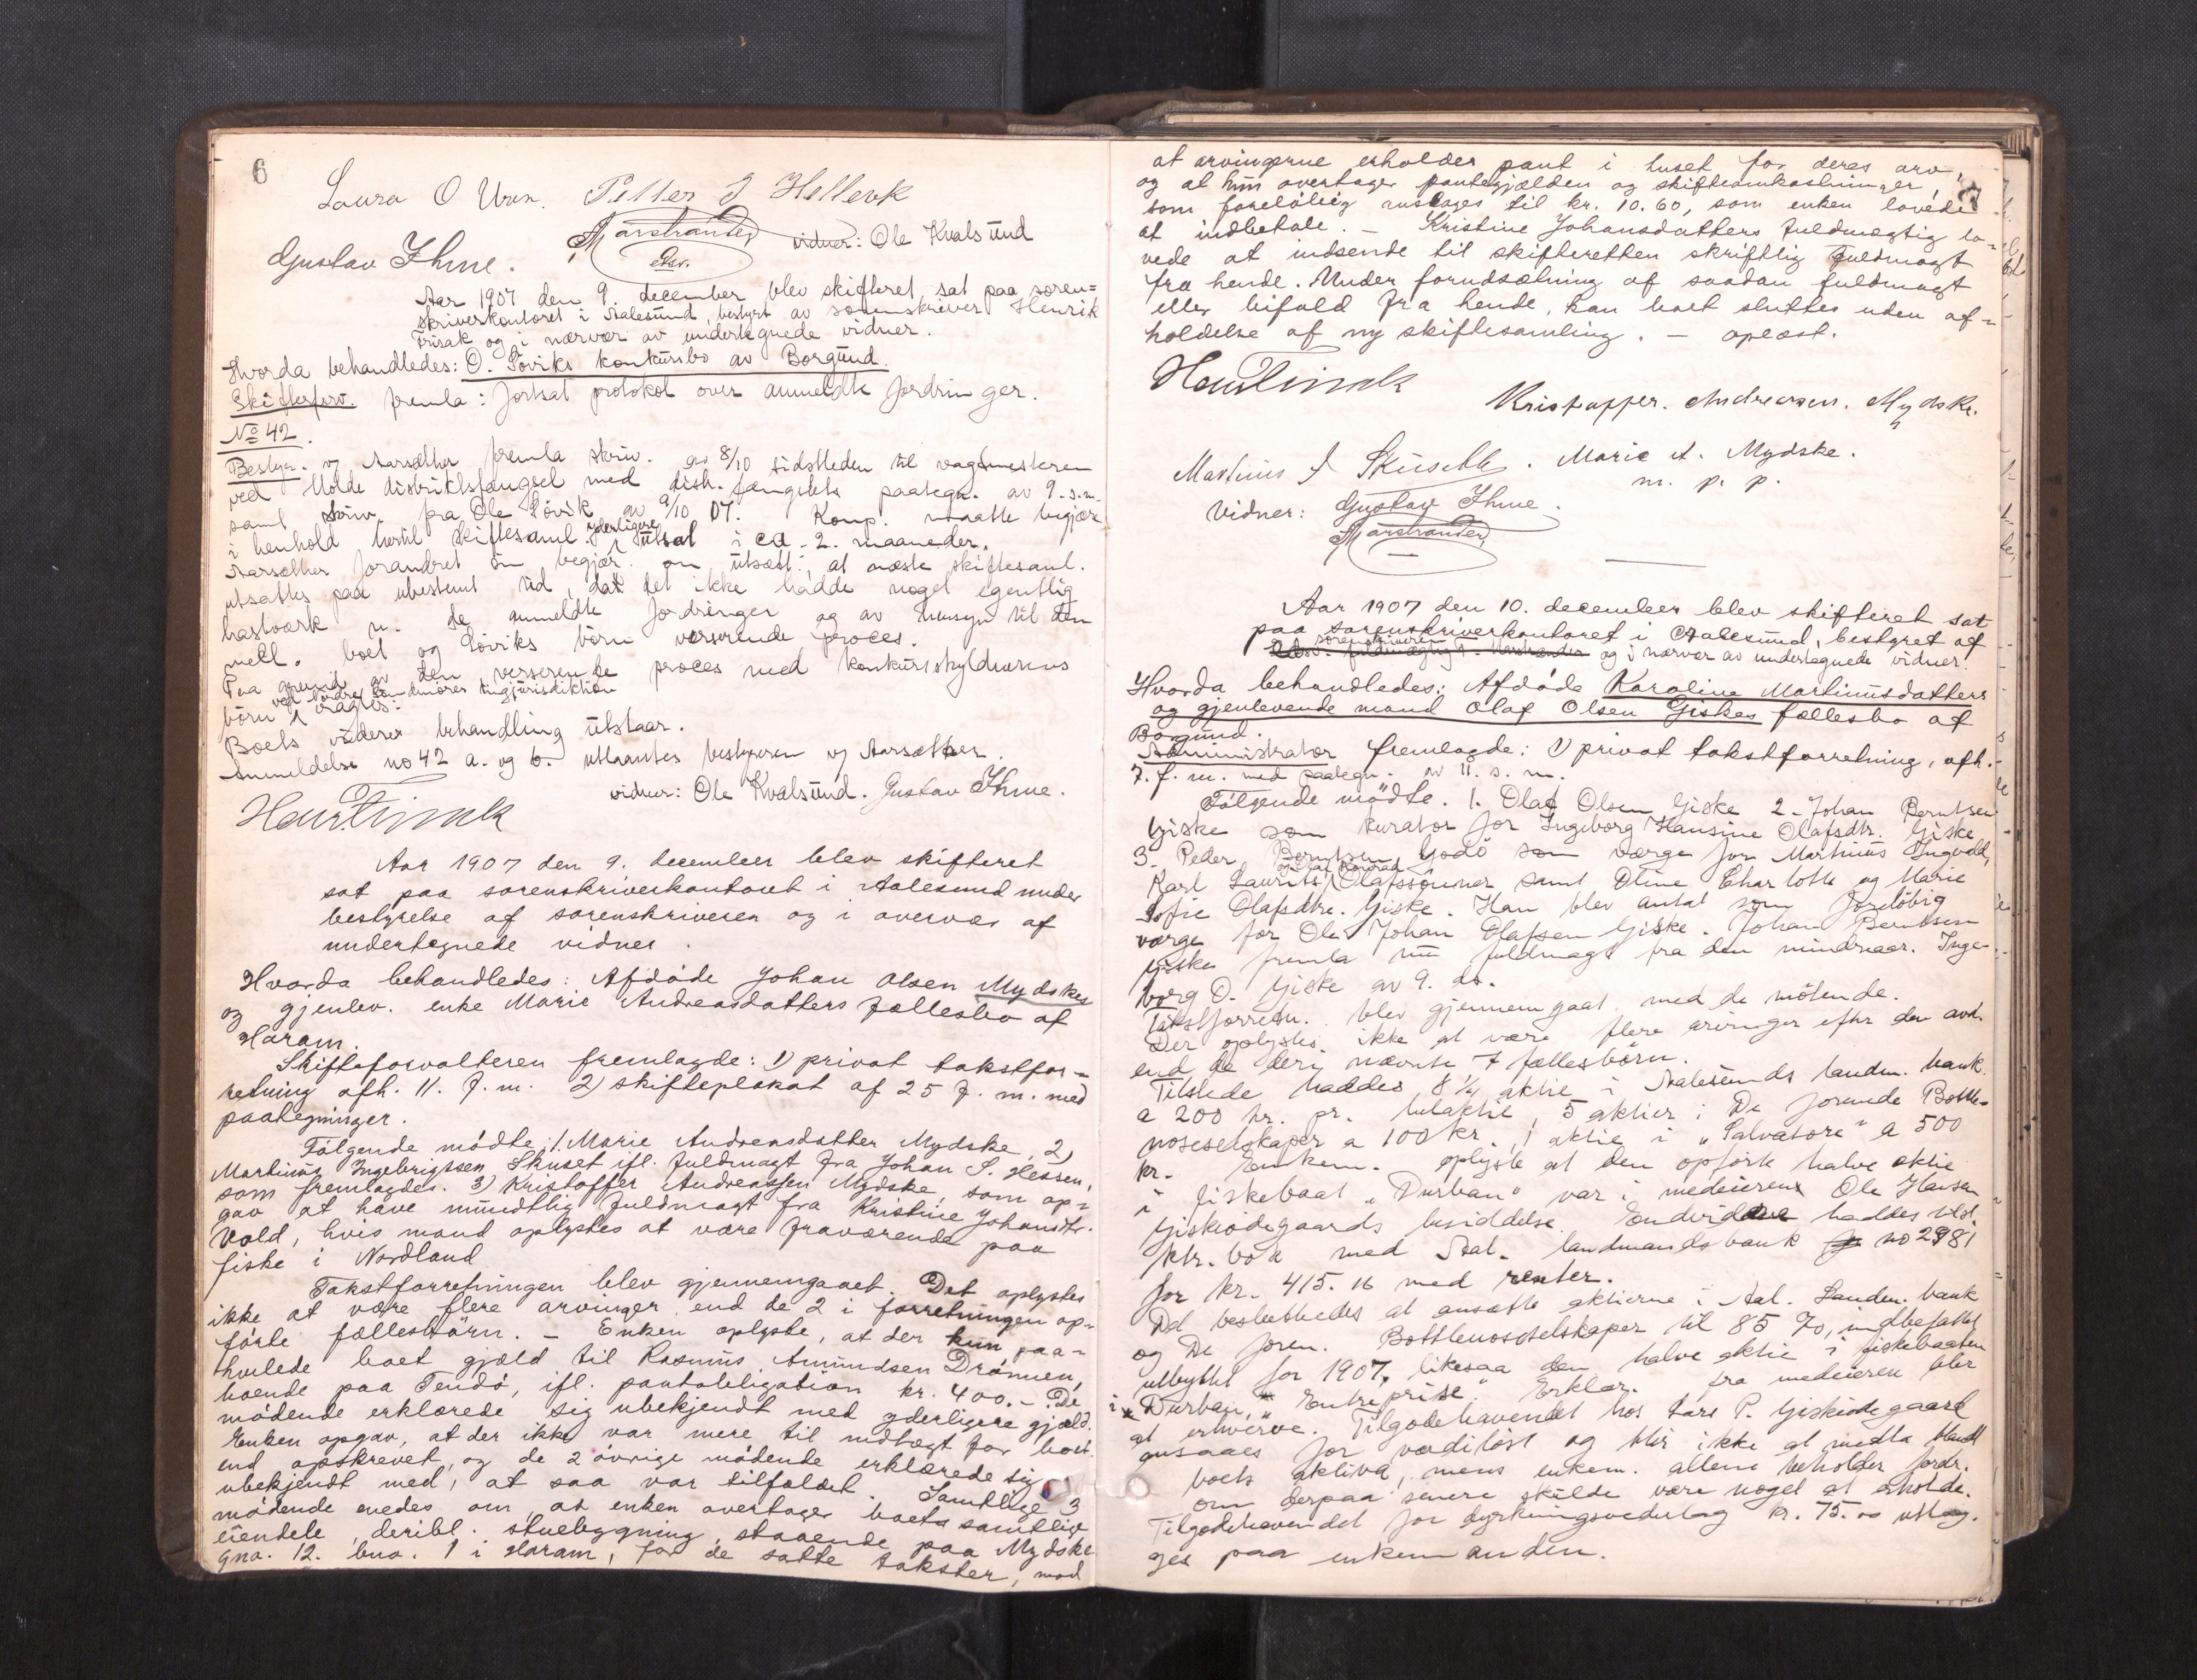 6
Laura O Urun. Petter J Hellevk
Marstrander
edsv.
vidner: Ole Kvalsund
Gustav Ihme.
Aar 1907 den 9. december blev skifteret sat paa soren=
skriverkontoret i Aalesund, bestyrt av sorenskriver Henrik
Finak og i nærvær av undertegnede vidner.
Hvorda behandledes: O. Løviks konkursbo av Borgund.
Skifteforv. fremla: fortsat protokol over anmeldte fordringer.
No 42.
Bestyr. og Aarsæther fremla skriv. av 8/10 sidstleden til vagtmesteren
ved Molde distriktsfængsel med distr. fængslets paategn. av 9. s.m.
samt skriv. fra Ole Løvik av 9/10 07. Komp. maatte begjære
i henhold hertil skiftesaml. yderligere utsat i ca. 2. maaneder.
Aarsæther forandret sin begjær. om utsætt. at næste skiftesaml.
utsattes paa ubestemt tid, da det ikke hadde noget egentlig
hastværk m. de anmeldte fordringer og av hensyn til den
mell. boet og Løviks børn verserende proces.
Paa grund av den verserende proces med konkursskyldnerens
børn ved søndre søndmøres tingjurisdiktion
Boets videre behandling utstaar.
Anmeldelse no 42 a. og b. utlaantes bestyreren og Aarsæther.
vidner: Ole Kvalsund. Gustav Ihme.
Aar 1907 den 9. december blev skifteret
sat paa sorenskriverkontoret i Aalesund under
bestyrelse af sorenskriveren og i overvær af
undertegnede vidner.
Hvorda behandledes: Afdöde Johan Olsen Mydskes
og gjenlev. enke Marie Andreasdatters fællesbo af
Haram.
Skifteforvalteren fremlagde: 1) privat takstfor=
retning afh. 11. f. m. 2) skifteplakat af 25 f. m. med
paategninger.
Følgende mödte: 1. Marie Andreasdatter Mydske, 2)
Martinus Ingebrigtsen Skuset ifl. fuldmagt fra Johan S. Hessen,
som fremlagdes. 3) Kristoffer Andreassen Mydske, som op=
gav at have mundtlig fuldmagt fra Kristine Johansdtr.
Vold, hvis mand oplystes at være fraværende paa
fiske i Nordland
Takstforretningen blev gjennemgaaet. Det oplystes
ikke at være flere arvinger end de 2 i forretningen op=
förte fællesbörn. - Enken oplyste, at der kun paa=
hvilede boet gjæld til Rasmus Amundsen Drönnen,
boende paa Fendö, ifl. pantobligation kr. 400. - De
mödende erklærede sig ubekjendt med yderligere gjæld.
Enken opgav, at der ikke var mere til indtægt for boet
end opskrevet, og de 2 övrige mödende erklærede sig
ubekjendt med, at saa var tilfældet. Samtlige 3
mödende enedes om, at enken overtager boets samtlige
eiendele, deribl. stuebygning, staaende paa Mydske
gno. 12. bno. 1 i Haram, for de satte takster, mod
at arvingerne erholder pant i huset for deres arv,
og at hun overtager pantegjælden og skifteomkostninger,
som forelöbig anslages til kr. 10.60, som enken lovede
at indbetale. - Kristine Johansdatters fuldmægtig lo=
vede at indsende til skifteretten skriftlig fuldmagt
fra hende. Under forudsætning af saadan fuldmagt
eller bifald fra hende, kan boet sluttes uden af=
holdelse af ny skiftesamling. - oplæst.
Kristoffer. Andreassen. Mydske.
Martinus I Skuseth. Marie A. Mydske.
m. p. p.
Vidner: Gustav Ihme.
Marstrander
Aar 1907 den 10. december blev skifteret sat
paa sorenskriverkontoret i Aalesund, bestyret af
sorenskriveren og i nærvær av undertegnede vidner.
Hvorda behandledes: Afdöde Karoline Martinusdatters
og gjenlevende mand Olaf Olsen Giskes fællesbo af
Borgund.
Administrator fremlagde: 1) privat takstforretning, afh.
7. f. m. med paategn. av 11. s. m.
Følgende mödte. 1. Olaf Olsen Giske 2. Johan Berntsen
Giske som kurator for Ingeborg Hansine Olafsdtr. Giske
3. Peder Berntsen Godö som værge for Martinus Ingvald,
Karl Laurits og Olaf Konrad Olafssönner samt Oline Charlotte og Marie
Sofie Olafsdtr. Giske. Han blev antat som foreløbig
værge for Ole Johan Olafsen Giske. Johan Berntsen
Giske fremla nu fuldmagt fra den mindreaar. Inge-
borg O. Giske av 9. ds.
Takstforretn. blev gjennemgaat med de mötende.
Der oplystes ikke at være flere arvinger efter den avd.
end de deri nævnte 7 fællesbörn.
Tilstede haddes 8 1/4 aktie i Aalesunds landm. bank.
a 200 kr. pr. helaktie, 5 aktier i De forende Bottle-
noseselskaper a 100 kr. 1 aktie i "Salvatore" a 500
kr. Enkem. oplyste at den opførte halve aktie
i fiskebaat "Durban" var i medeieren Ole Hansen
Giskeödegaards besiddelse. Endvidere haddes
ktr. bok med Aal. landmandsbank no 2981
for kr. 415.16 med renter.
Det besluttedes at ansætte aktierne i Aal. Landm. bank
og De foren. Bottlenoseselskaper til 85 %, indbefattet
utbyttet for 1907, likesaa den halve aktie i fiskebaaten
"Durban," "Entreprise." Erklær. fra medeieren blir
at erhverve. Tilgodehavendet hos Lars P. Giskeödegaard
ansaaes for værdiløst og blir ikke at medta blandt
boets aktiva, mens enkem. allene beholder fordr.
om derpaa senere skulde være noget at erholde.
Tilgodehavendet for dyrkningsvederlag kr. 75.00 utlæg-
ges paa enkemanden.